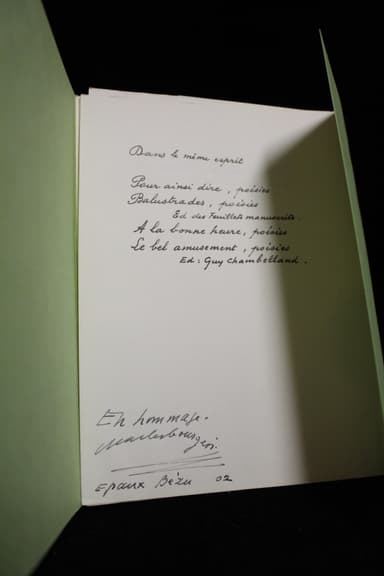 Dans le même esprit
Pour ainsi dire, poésies
Balustrades, poésies
Ed des Feuillets manuscrits.
A la bonne heure, poésies
Le bel amusement, poésies
Ed: Guy Chambelland.
En hommage.
charles bourgeois.
Epaux Bézu 02